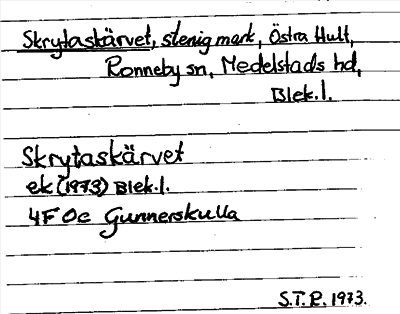 Skrytaskärvet, stenig mark, Östra Hult,
Ronneby sn, Medelstads hd,
Blek.l.
Skrytaskärvet
ek (1973) Blek.l.
4F 0c Gunnerskulla
S.T.P. 1973.